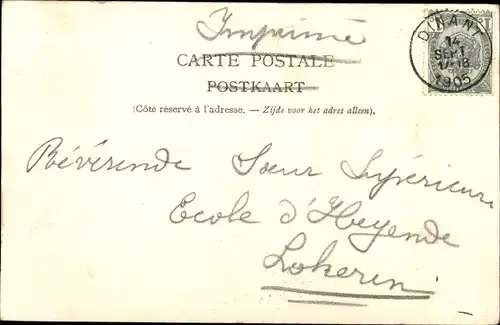 Imprimé
CARTE POSTALE
POSTKAART
(Côté réservé à l'adresse. — Zijde voor het adres alleen).
DINANT
14
SEPT
1905
Révérende Sœur Supérieure
Ecole d'Heyende
Lokeren